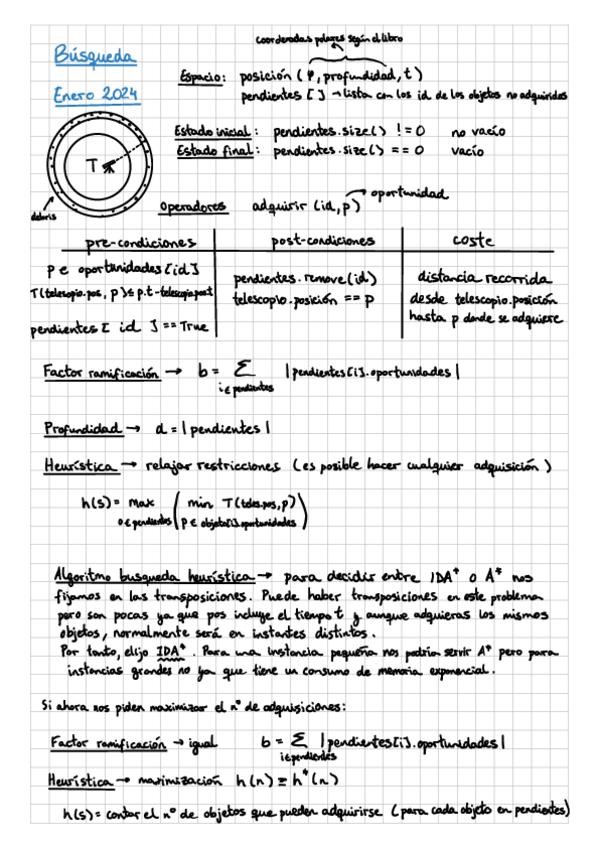 Búsqueda
Enero 2024
coordenadas polares según el libro
Espacio: posición (φ, profundidad, t)
pendientes [] → lista con los id de los objetos no adquiridos
Estado inicial: pendientes.size() != 0 no vacío
Estado final: pendientes.size() == 0 vacío
T
debris
Operadores adquirir (id, p) → oportunidad
pre-condiciones post-condiciones coste
p ∈ oportunidades [id]
T(telescopio.pos, p) ≤ p.t - telescopio.pos.t
pendientes [ id ] == True
pendientes.remove(id)
telescopio.posición == p
distancia recorrida
desde telescopio.posición
hasta p donde se adquiere
Factor ramificación → b = Σ |pendientes[i].oportunidades|
i ∈ pendientes
Profundidad → d = |pendientes|
Heurística → relajar restricciones (es posible hacer cualquier adquisición)
h(s) = max ( min T(teles.pos, p) )
o ∈ pendientes p ∈ objeto[i].oportunidades
Algoritmo busqueda heurística → para decidir entre IDA* o A* nos
fijamos en las transposiciones. Puede haber transposiciones en este problema
pero son pocas ya que pos incluye el tiempo t y aunque adquieras los mismos
objetos, normalmente será en instantes distintos.
Por tanto, elijo IDA*. Para una instancia pequeña nos podría servir A* pero para
instancias grandes no ya que tiene un consumo de memoria exponencial.
Si ahora nos piden maximizar el nº de adquisiciones:
Factor ramificación → igual b = Σ |pendientes[i].oportunidades|
i ∈ pendientes
Heurística → maximización h(n) ≥ h*(n)
h(s) = contar el nº de objetos que pueden adquirirse (para cada objeto en pendientes)